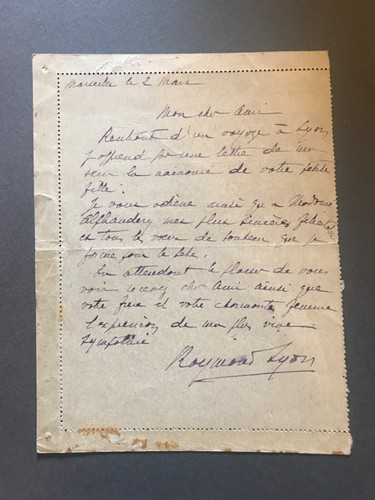 Marseille le 2 Mars
Mon cher Ami
Rentrant d'un voyage à Lyon
j'apprend par une lettre de ma
sœur la naissance de votre petite
fille.
Je vous adresse ainsi qu'a Madame
Alphandery mes plus sincères félicitat
et tous les vœux de bonheur que je
forme pour le bébé.
En attendant le plaisir de vous
voir recevez cher Ami ainsi que
votre frere et votre charmante femme
l'expression de ma plus vive
sympathie
Raymond Lyon